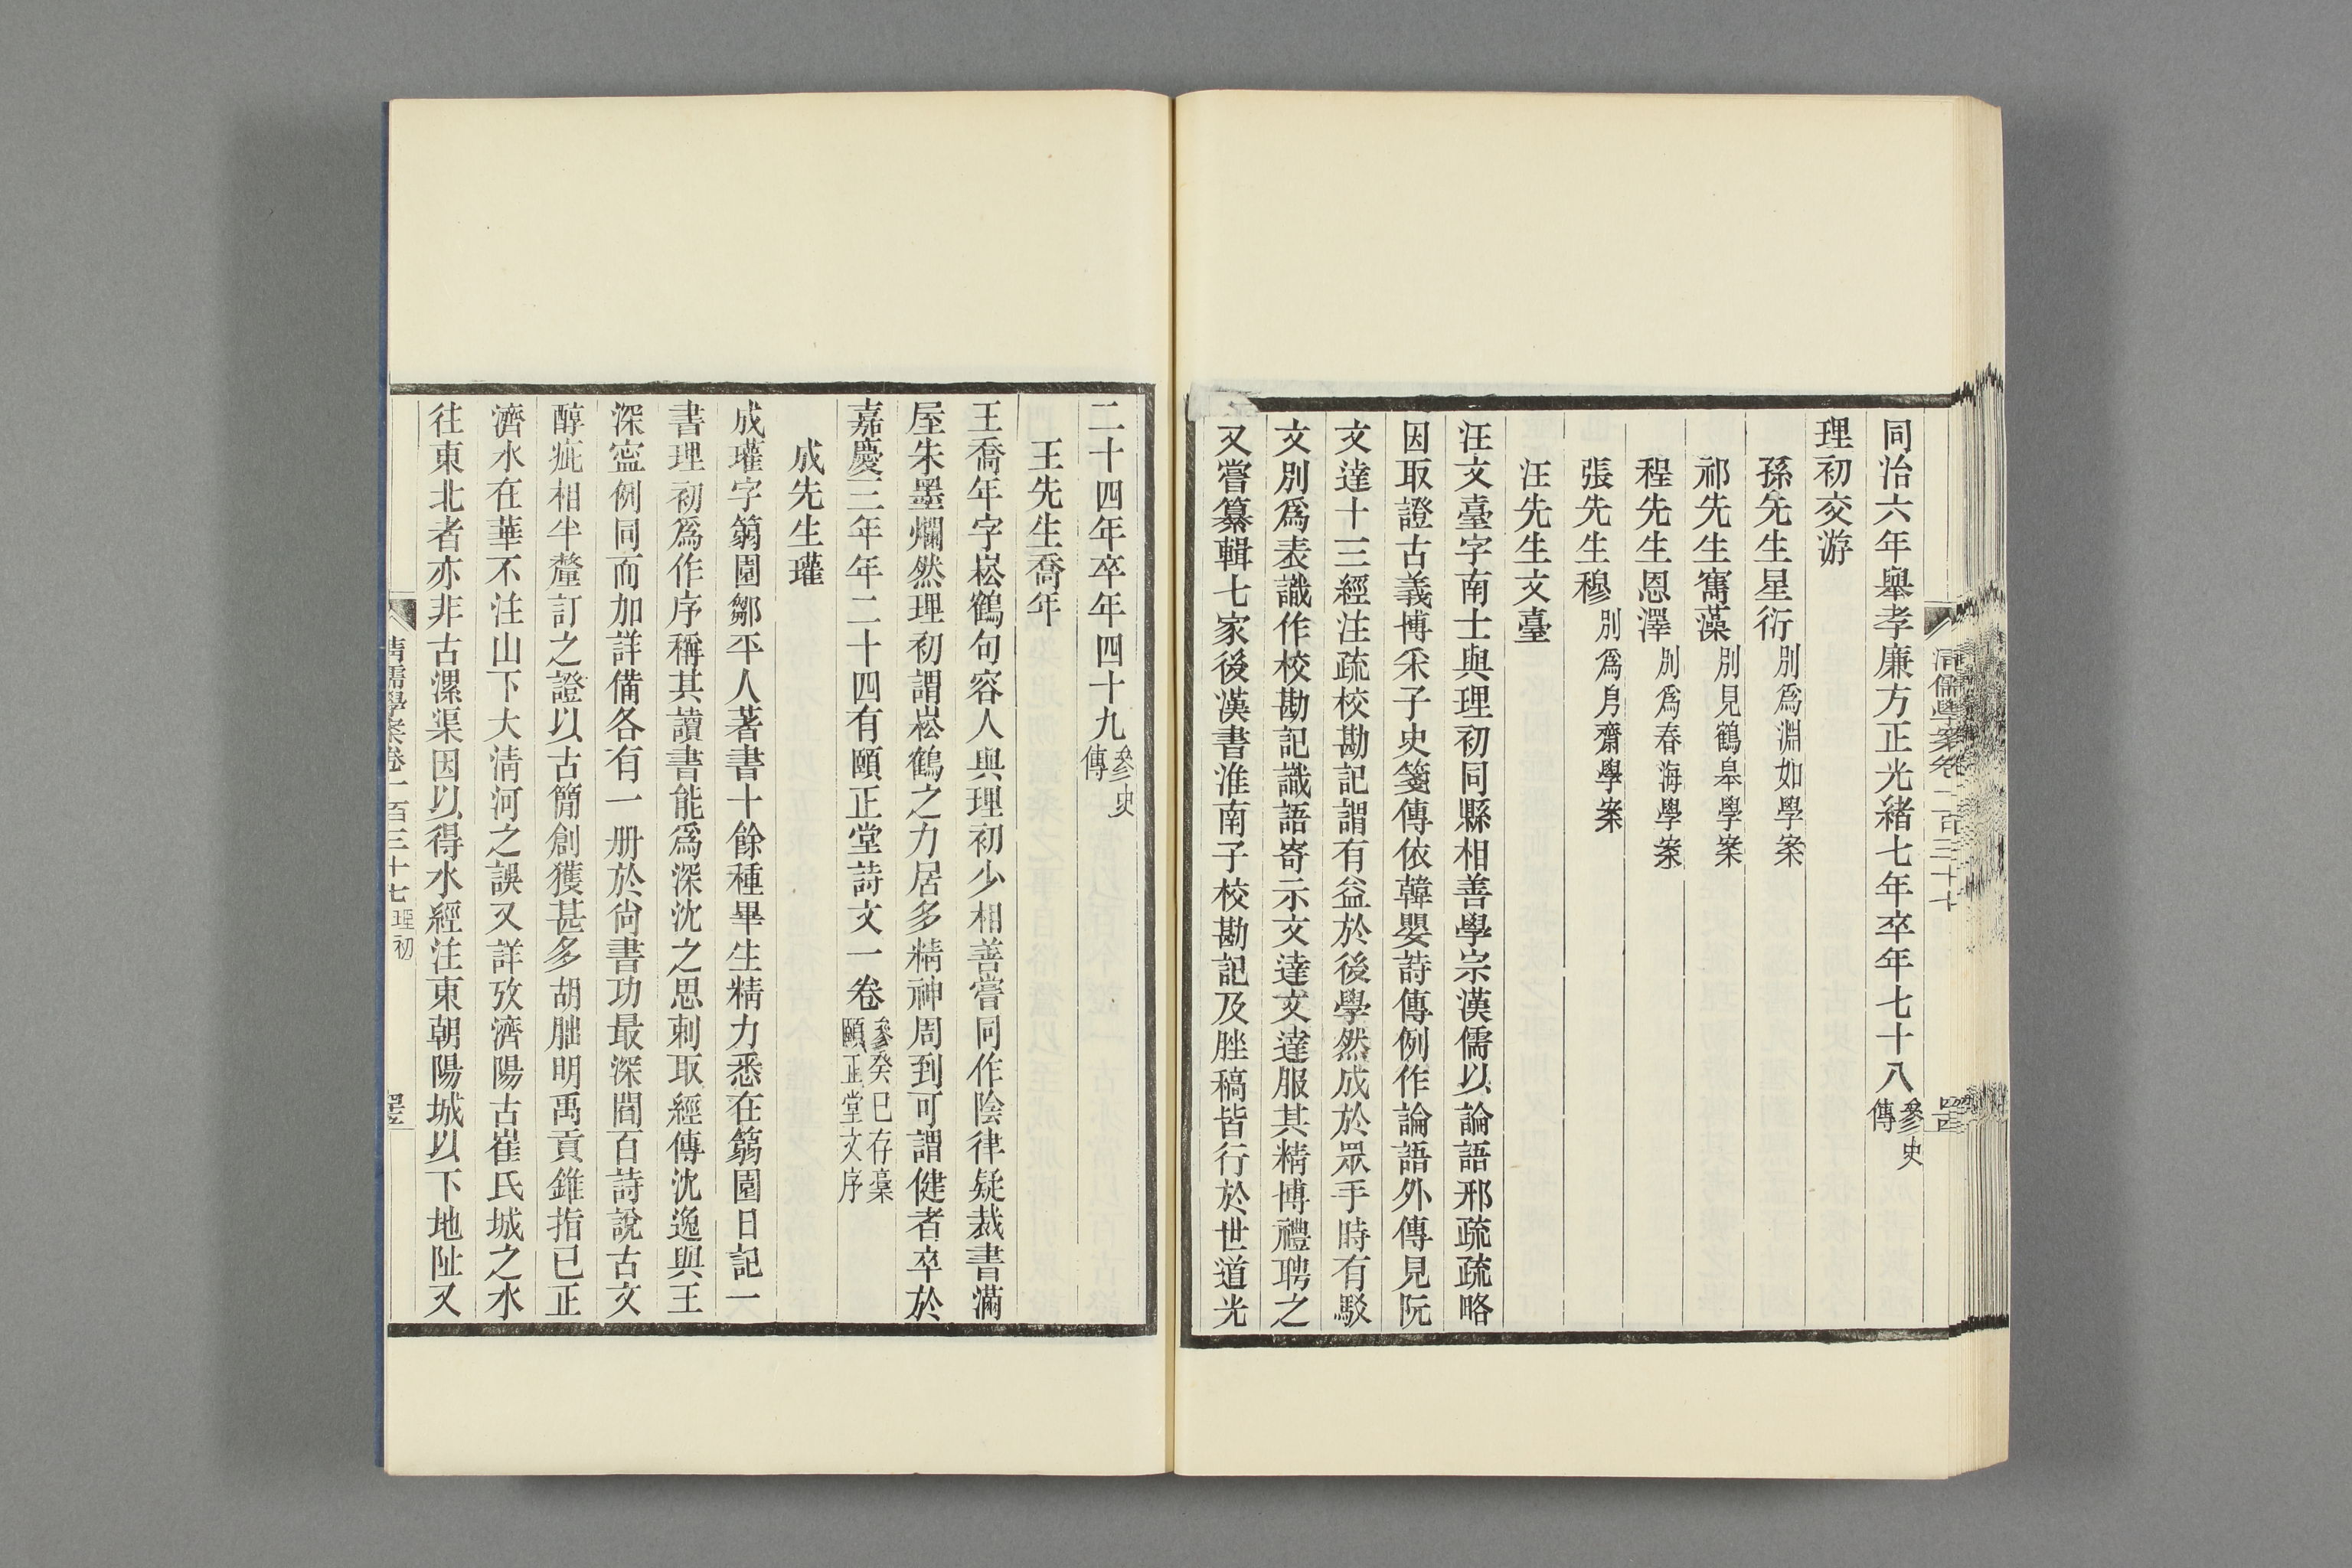 同治六年舉孝廉方正光緒七年卒年七十八參史傳
理初交游
孫先生星衍別爲淵如學案
祁先生寯藻別見鶴皋學案
程先生恩澤別爲春海學案
張先生穆別爲㐆齋學案
汪先生文臺
汪文臺字南士與理初同縣相善學宗漢儒以論語邢疏疏略
因取證古義博采子史箋傳依韓嬰詩傳例作論語外傳見阮
文達十三經注疏校勘記謂有益於後學然成於眾手時有駁
文別爲表識作校勘記識語寄示文達文達服其精博禮聘之
又嘗纂輯七家後漢書淮南子校勘記及脞稿皆行於世道光
二十四年卒年四十九參史傳
王先生喬年
王喬年字崧鶴句容人與理初少相善嘗同作陰律疑裁書滿
屋朱墨爛然理初謂崧鶴之力居多精神周到可謂健者卒於
嘉慶三年年二十四有頤正堂詩文一卷參癸巳存稾頤正堂文序
成先生瓘
成瓘字篛園鄒平人著書十餘種畢生精力悉在篛園日記一
書理初爲作序稱其讀書能爲深沈之思刺取經傳沈逸與王
深寍例同而加詳備各有一册於尙書功最深閻百詩說古文
醇疵相半釐訂之證以古簡創獲甚多胡朏明禹貢錐指已正
濟水在華不注山下大淸河之誤又詳攷濟陽古崔氏城之水
往東北者亦非古漯渠因以得水經注東朝陽城以下地阯又
清儒學案卷一百三十七 理初